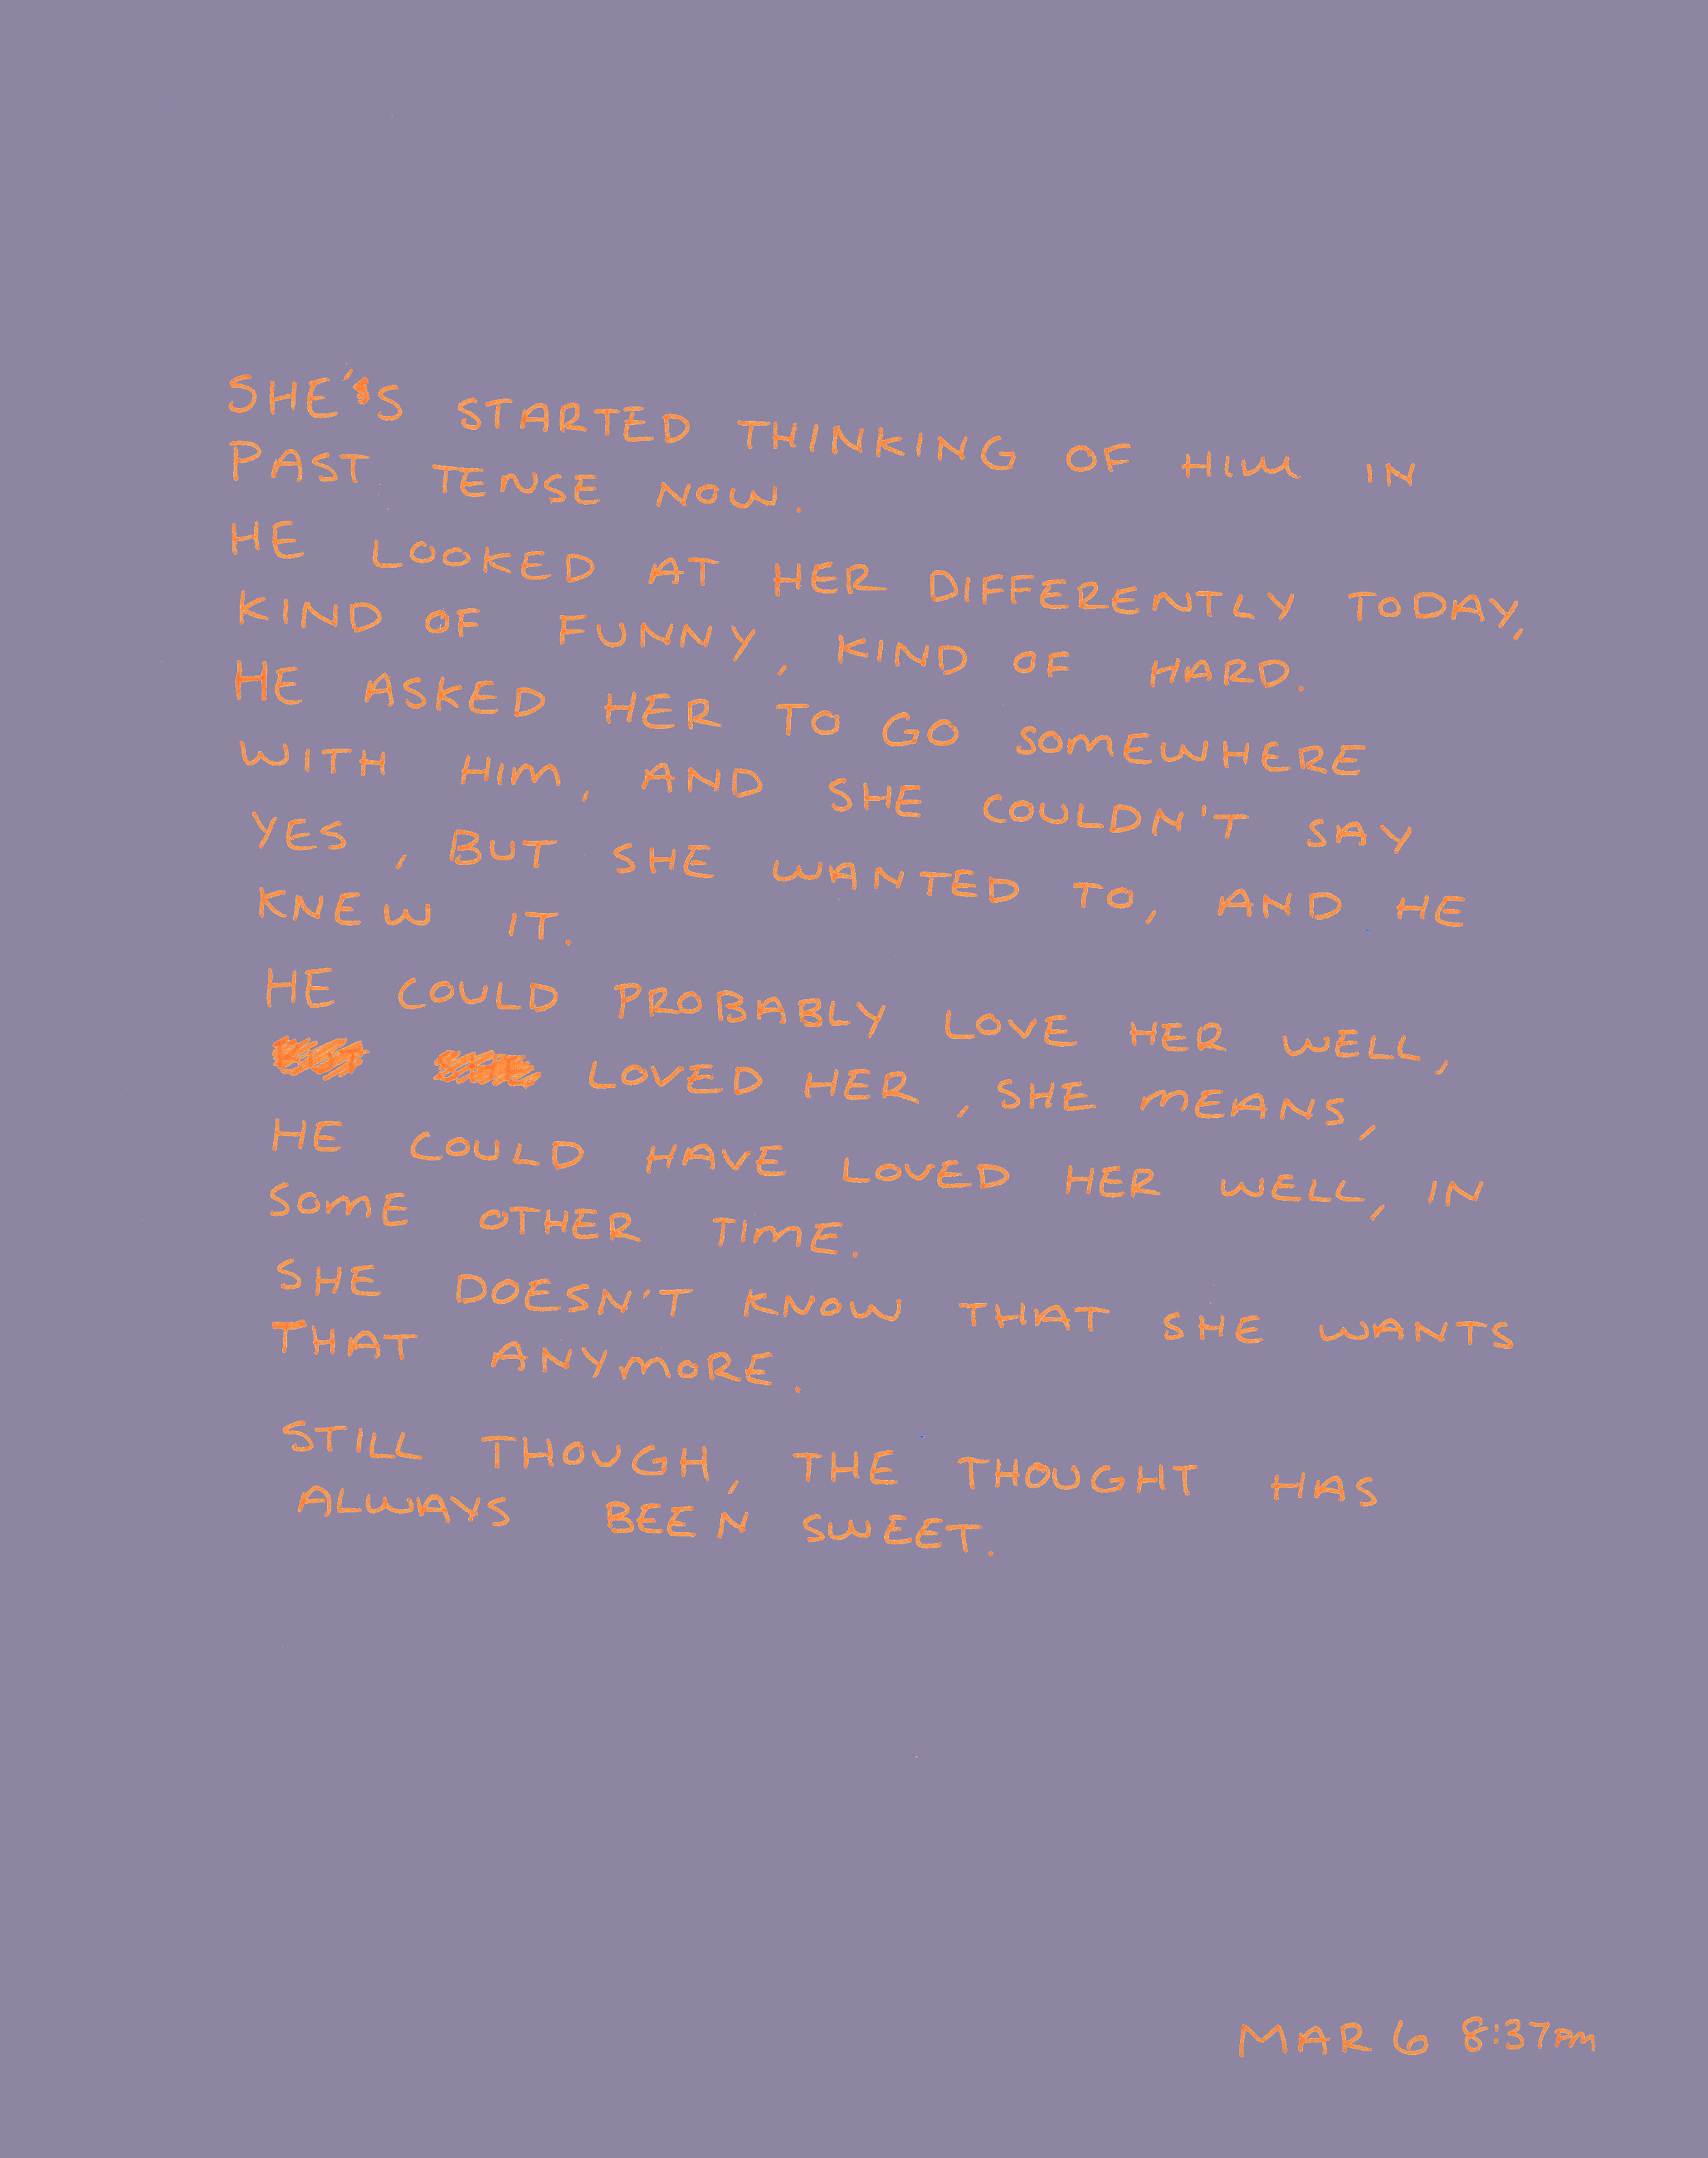 SHE'S STARTED THINKING OF HIM IN
PAST TENSE NOW.
HE LOOKED AT HER DIFFERENTLY TODAY,
KIND OF FUNNY, KIND OF HARD.
HE ASKED HER TO GO SOMEWHERE
WITH HIM, AND SHE COULDN'T SAY
YES, BUT SHE WANTED TO, AND HE
KNEW IT.
HE COULD PROBABLY LOVE HER WELL,
LOVED HER, SHE MEANS,
HE COULD HAVE LOVED HER WELL, IN
SOME OTHER TIME.
SHE DOESN'T KNOW THAT SHE WANTS
THAT ANYMORE.
STILL THOUGH, THE THOUGHT HAS
ALWAYS BEEN SWEET.
MAR 6 8:37PM